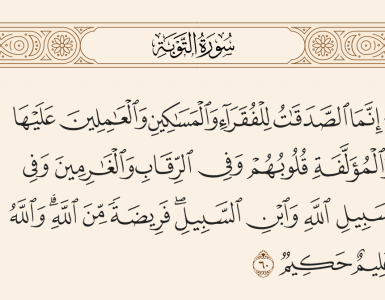 سُورَةُ التَّوْبَةِ
إِنَّمَا الصَّدَقَاتُ لِلْفُقَرَاءِ وَالْمَسَاكِينِ وَالْعَامِلِينَ عَلَيْهَا
وَالْمُؤَلَّفَةِ قُلُوبُهُمْ وَفِي الرِّقَابِ وَالْغَارِمِينَ وَفِي
سَبِيلِ اللَّهِ وَابْنِ السَّبِيلِ ۖ فَرِيضَةً مِّنَ اللَّهِ ۗ وَاللَّهُ
عَلِيمٌ حَكِيمٌ ٦٠